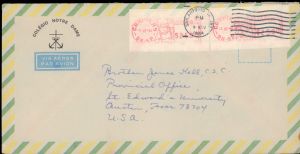 COLÉGIO NOTRE DAME
VIA AÉREA
PAR AVION
PM
Brother James Kell, C.S.C
Provincial Office
St. Edward's University
Austin, Texas 78704
U.S.A.